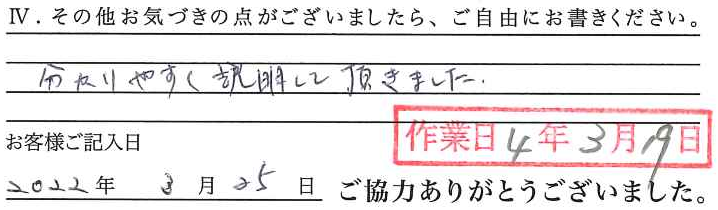 Ⅳ．その他お気づきの点がございましたら、ご自由にお書きください。
分かりやすく説明して頂きました.
作業日 4年 3月 19日
お客様ご記入日
2022年 3月 25日 ご協力ありがとうございました。